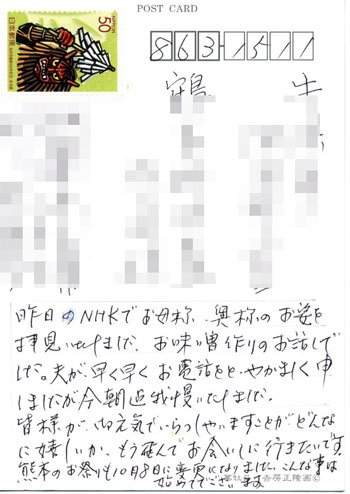 POST CARD
NIPPON
50
日本郵便
863-1511
昨日のNHKでお母様、奥様のお姿を
拝見いたしました。お味噌作りのお話しで
した。夫が早く早くお電話をとやかましく申
しましたが今朝迄我慢いたしました。
皆様がお元気でいらっしゃいますことがどんな
に嬉しいか、もう飛んでお会いしに行きたいです。
熊本のお祭りも10月8日に変更になりました。こんな事は
始めてでございます